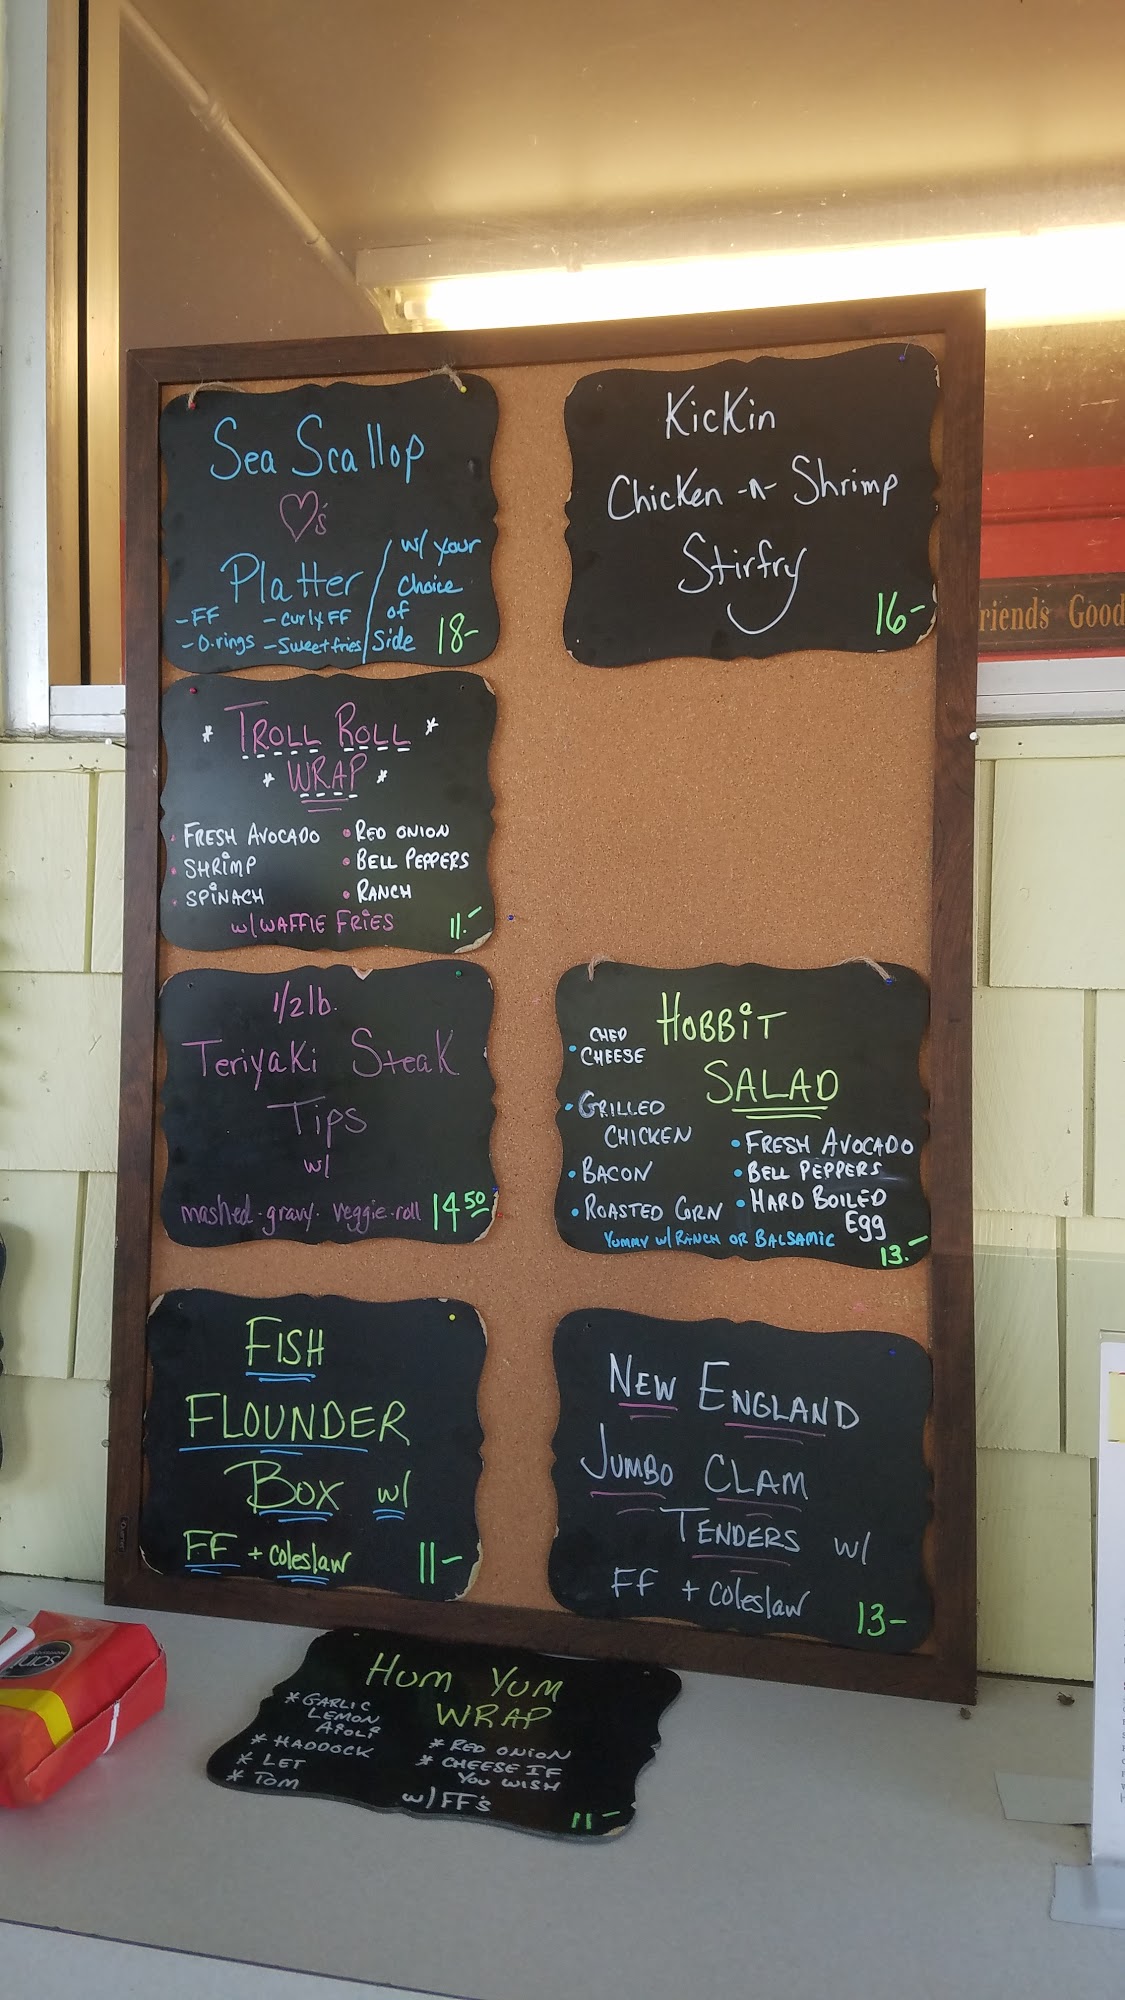 Sea Scallop
♡'s
Platter / w/ your choice of side
-FF -curly FF
-O.rings -Sweet fries
18-
Kickin
Chicken -n- Shrimp
Stirfry
16-
riends Good
* TROLL ROLL *
* WRAP *
• FRESH AVOCADO • RED ONION
• SHRIMP • BELL PEPPERS
• SPINACH • RANCH
w/WAFFlE FRIES 11.-
1/2 lb.
Teriyaki Steak
Tips
w/
mashed · gravy · veggie · roll 14 50
HOBBIT
SALAD
• CHED CHEESE
• GRILLED
CHICKEN
• BACON
• ROASTED CORN
• FRESH AVOCADO
• BELL PEPPERS
• HARD BOILED
Egg
YUMMY w/ RANCH OR BALSAMIC
13.-
FISH
FLOUNDER
BOX w/
FF + coleslaw 11-
NEW ENGLAND
JUMBO CLAM
TENDERS w/
FF + coleslaw 13-
HUM YUM
WRAP
* GARLIC
LEMON
AIOLI
* HADDOCK
* LET
* TOM
* RED ONION
* CHEESE IF
YOU WISH
w/FF's
11-